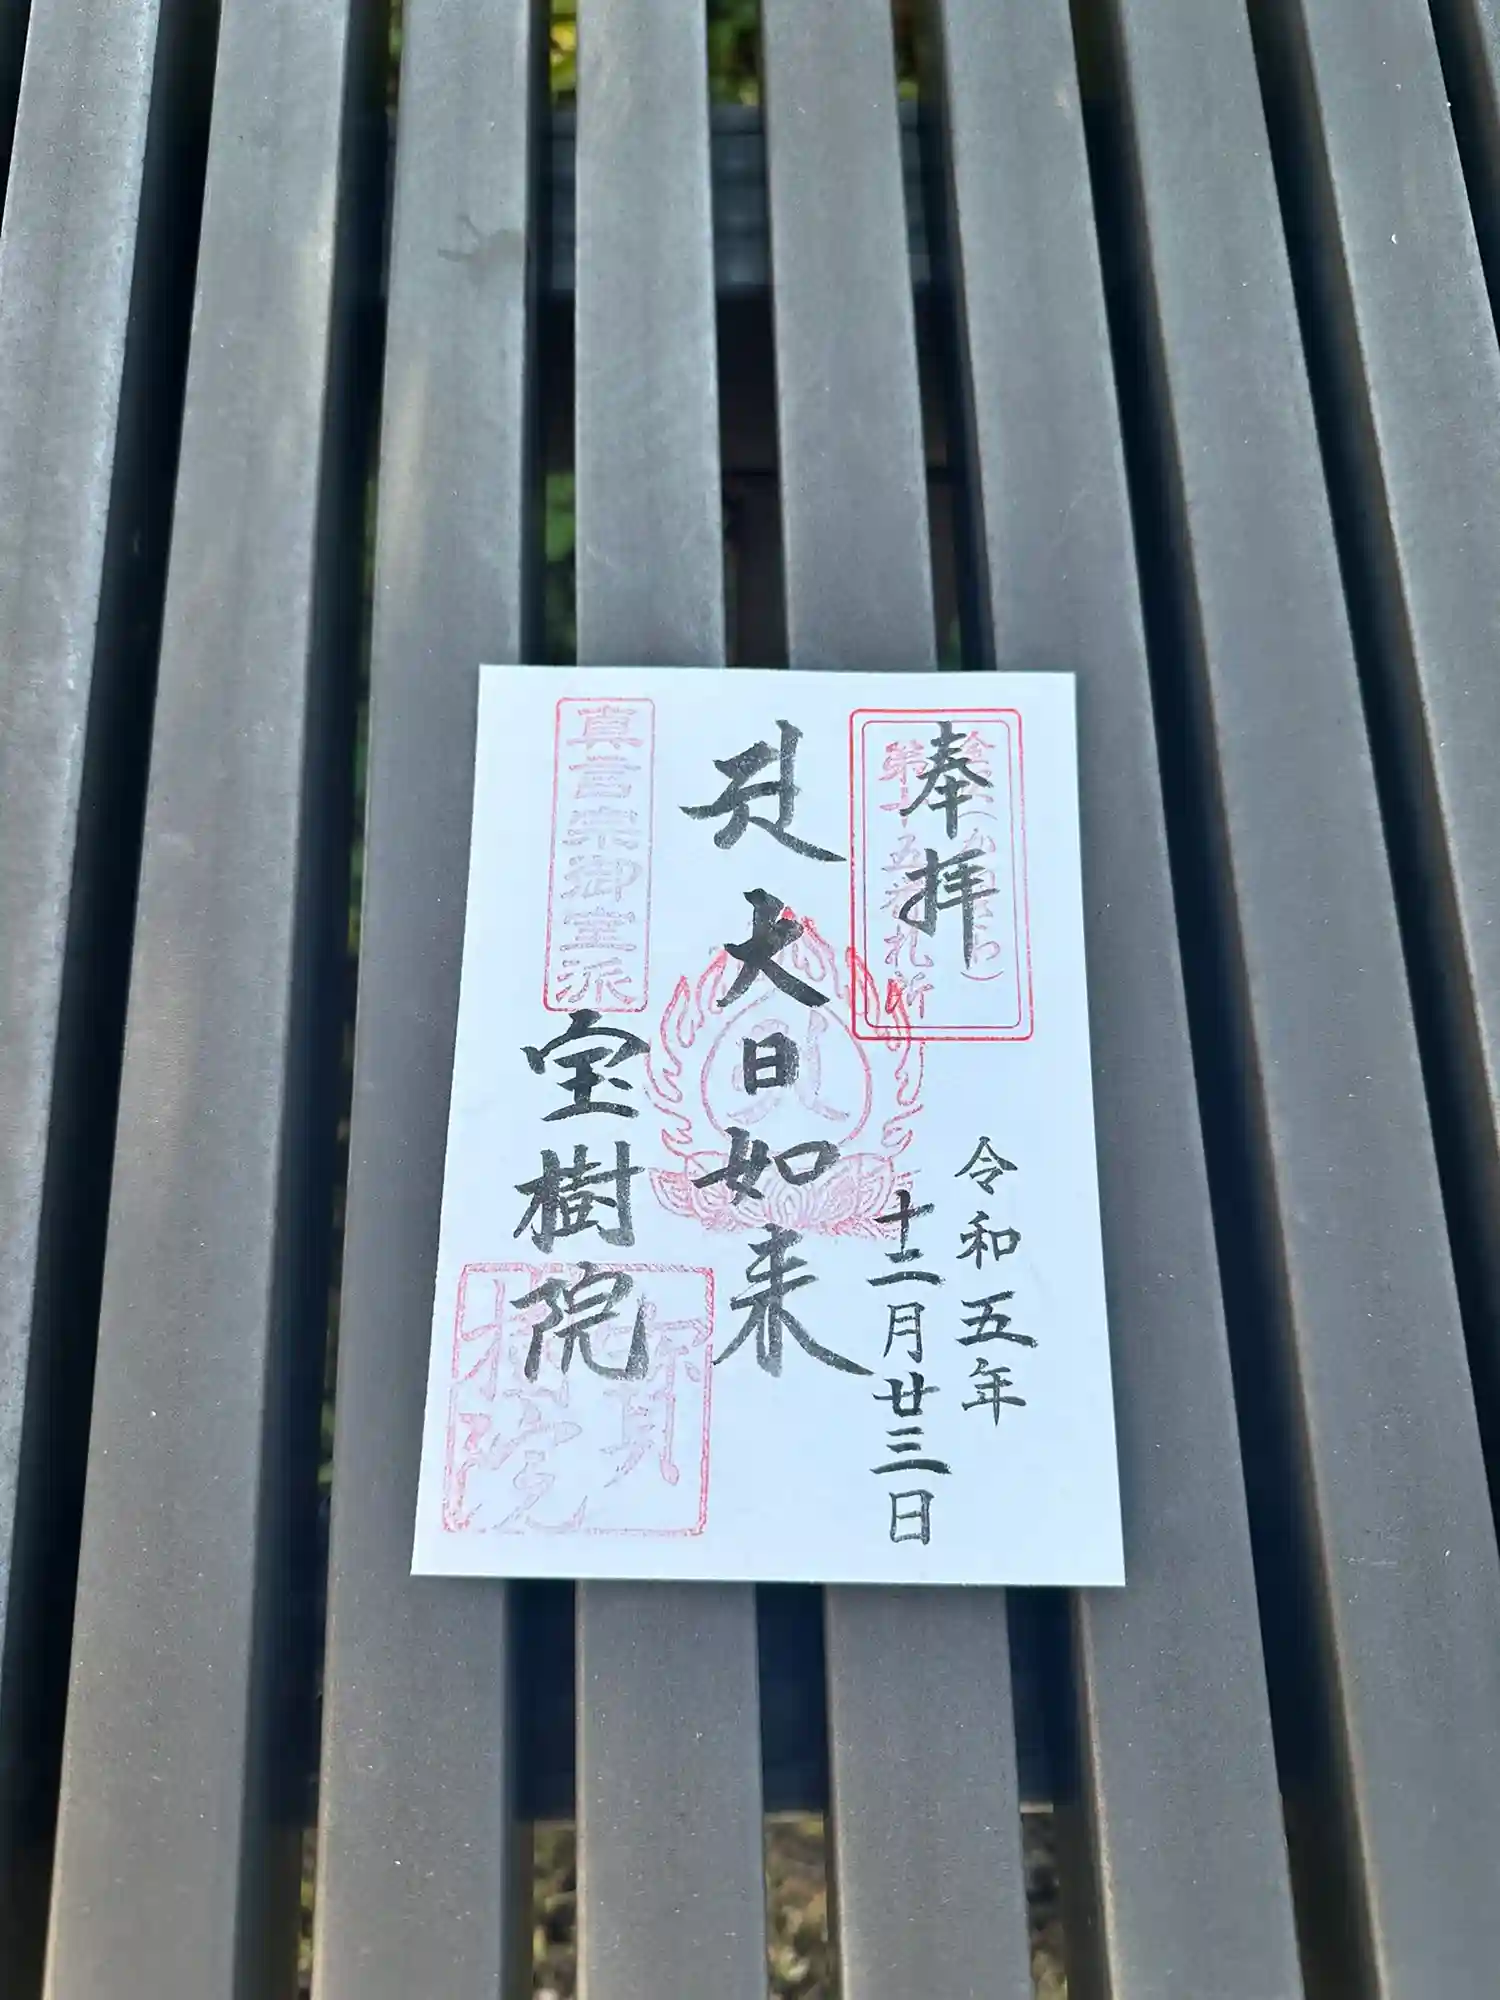 奉拝
第十五番札所
令和五年
十二月廿三日
大日如来
真言宗御室派
宝樹院